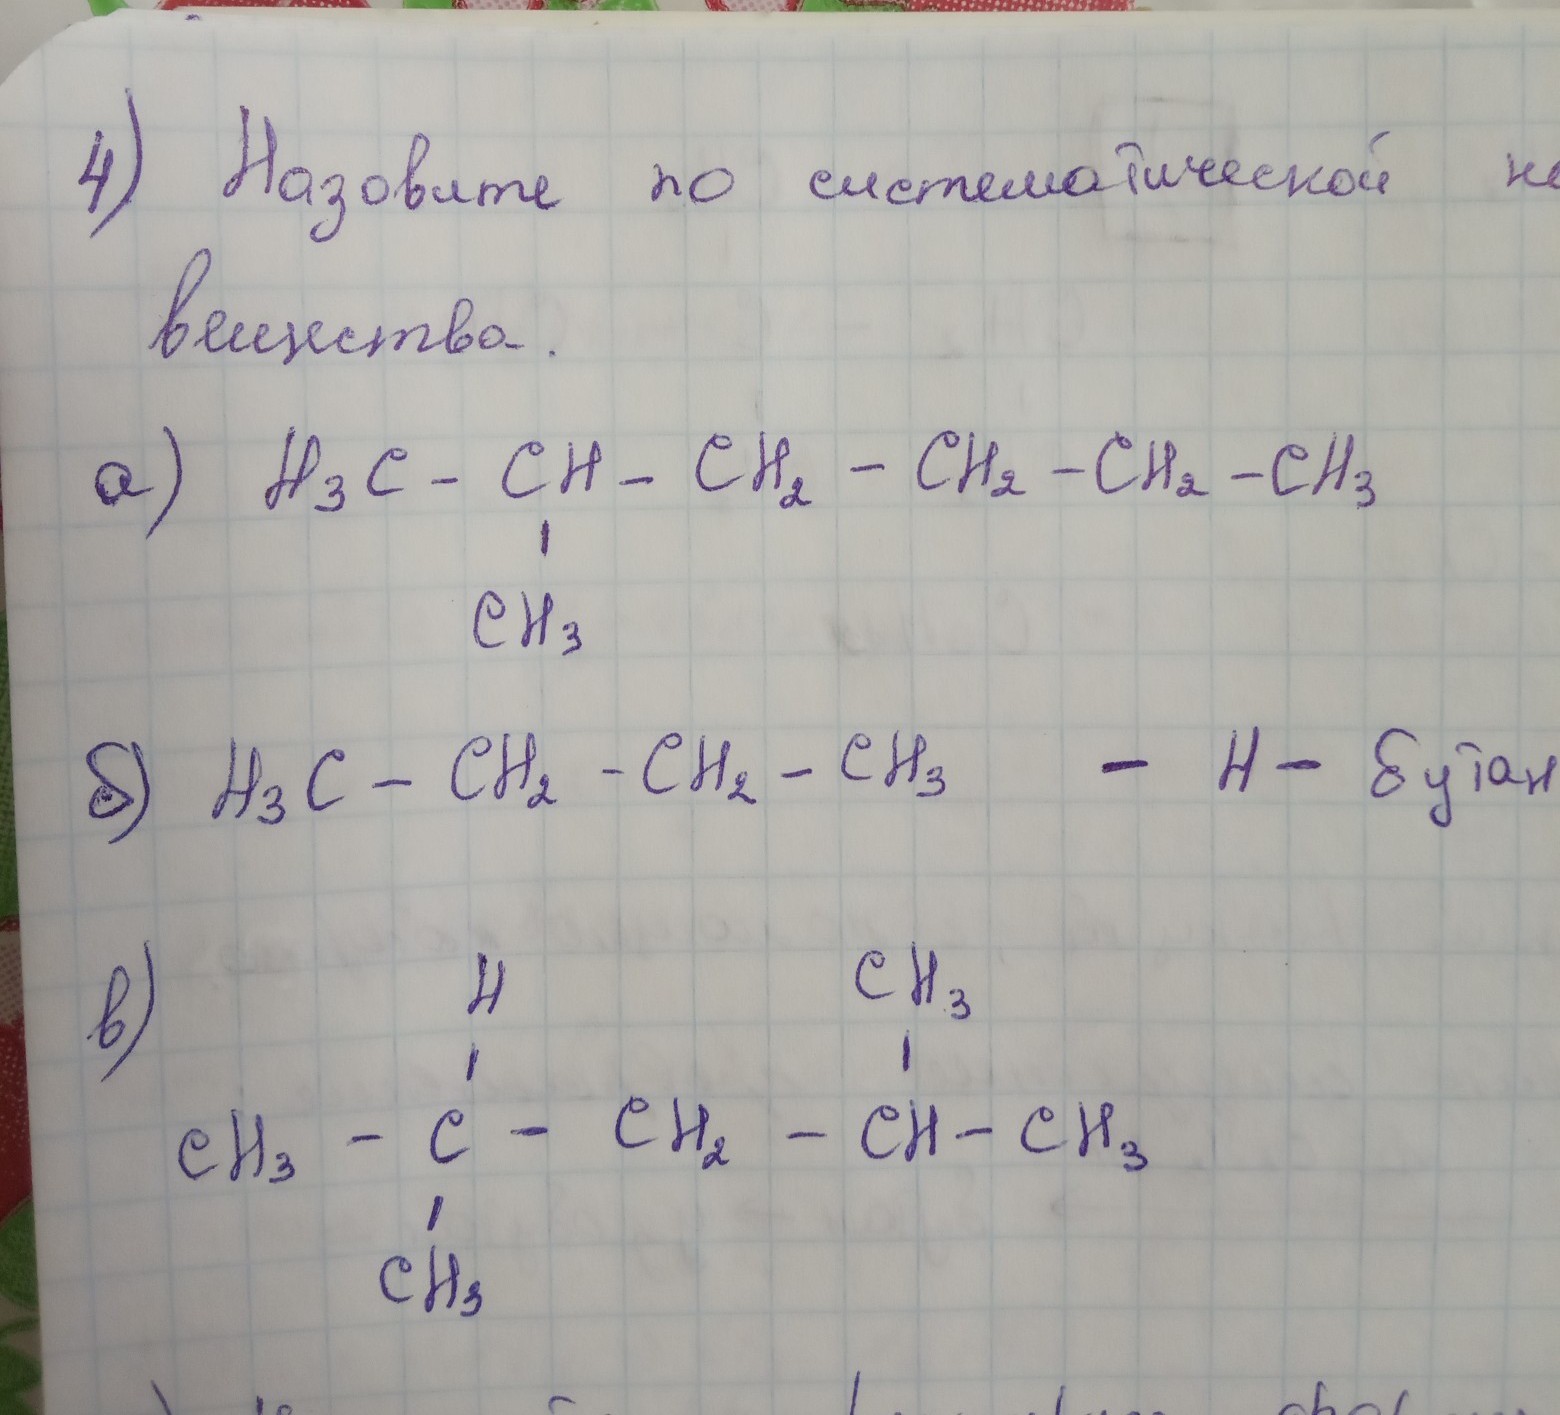 4) Назовите по систематической
вещества.
а) H₃C - CH - CH₂ - CH₂ - CH₂ - CH₃
CH₃
б) H₃C - CH₂ - CH₂ - CH₃ - н- бутан
в)
H CH₃
CH₃ - C - CH₂ - CH - CH₃
CH₃